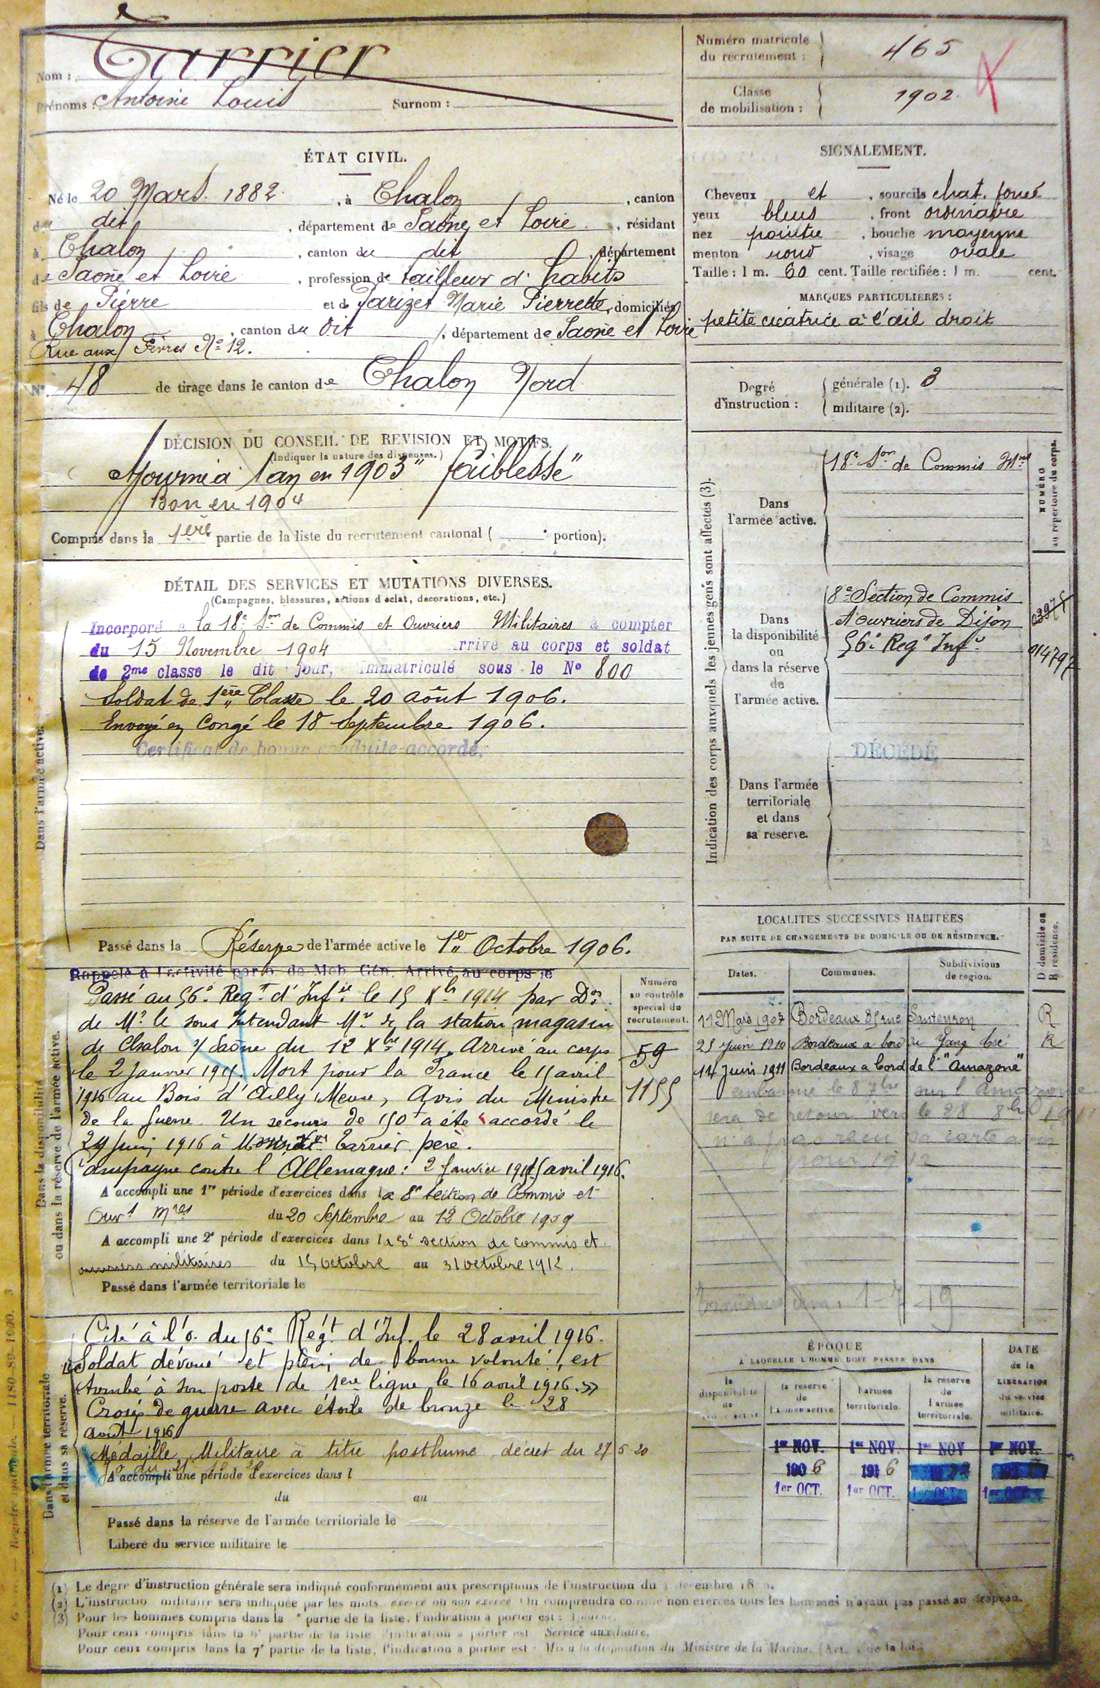 Nom : Carrier
Prénoms : Antoine Louis Surnom :
Numéro matricule du recrutement : 465
Classe de mobilisation : 1902
ÉTAT CIVIL.
Né le 20 Mars 1882, à Chalon, canton
dudit, département de Saône et Loire, résidant
à Chalon, canton du dit, département
de Saône et Loire, profession de tailleur d'habits
fils de Pierre et de Parizet Marie Pierrette, domiciliés
à Chalon, canton du dit, département de Saône et Loire
Rue aux Fèvres No 12.
No 48 de tirage dans le canton de Chalon Nord
SIGNALEMENT.
Cheveux et, sourcils chat. foncé
yeux bleus, front ordinaire
nez pointu, bouche moyenne
menton rond, visage ovale
Taille : 1 m. 60 cent. Taille rectifiée : 1 m. cent.
MARQUES PARTICULIÈRES :
petite cicatrice à l'œil droit
Degré d'instruction : générale (1). 3
militaire (2).
DÉCISION DU CONSEIL DE REVISION ET MOTIFS.
(Indiquer la nature des dispenses.)
Ajourné à 1 an en 1903 "faiblesse"
Bon en 1904
Compris dans la 1ère partie de la liste du recrutement cantonal ( portion).
DÉTAIL DES SERVICES ET MUTATIONS DIVERSES.
(Campagnes, blessures, actions d'éclat, décorations, etc.)
Dans l'armée active.
Incorporé à la 18e Son de Commis et Ouvriers Militaires à compter
du 15 Novembre 1904 arrivé au corps et soldat
de 2me classe le dit jour, immatriculé sous le No 800
Soldat de 1ère Classe le 20 août 1906.
Envoyé en Congé le 18 Septembre 1906.
Certificat de bonne conduite accordé.
Passé dans la Réserve de l'armée active le 1er Octobre 1906.
Dans la disponibilité ou dans la réserve de l'armée active.
Rappelé à l'activité par o. de Mob. Gén. Arrivé au corps le
Passé au 56e Regt d'Infie le 15 Xbre 1914 par Don
de Mr le sous Intendant Mre de la station magasin
de Chalon s/ Saône du 12 Xbre 1914. Arrivé au corps
le 2 Janvier Mort pour la France le avril
1916 au Bois d'Ailly Meuse, Avis du Ministre
de la Guerre. Un secours de 150f a été accordé le
29 Juin 1916 à Monsieur Carrier père.
Campagne contre l'Allemagne : 2 Janvier avril 1916.
A accompli une 1re période d'exercices dans la 8e section de Commis et
Ouvrs Mres du 20 Septembre au 12 Octobre 1909
A accompli une 2e période d'exercices dans la 8e section de commis et
ouvriers militaires du 15 octobre au 31 octobre 1912.
Passé dans l'armée territoriale le
Numéro au contrôle spécial du recrutement.
59
1155
Dans l'armée territoriale et dans sa réserve.
Cité à l'o. du 56e Régt d'Inf. le 28 avril 1916.
"Soldat dévoué et plein de bonne volonté, est
tombé à son poste de 1ère ligne le 16 avril 1916."
Croix de guerre avec étoile de bronze le 28
août 1916
Médaille Militaire à titre posthume, décret du 27 5 20
A accompli une période d'exercices dans l
du au
Passé dans la réserve de l'armée territoriale le
Libéré du service militaire le
Indication des corps auxquels les jeunes gens sont affectés (3).
NUMÉRO au répertoire du corps.
Dans l'armée active.
18e Son de Commis Mres
Dans la disponibilité ou dans la réserve de l'armée active.
8e Section de Commis
et ouvriers de Dijon
56e Regt Infie
014797
Dans l'armée territoriale et dans sa réserve.
DÉCÉDÉ
LOCALITÉS SUCCESSIVES HABITÉES
PAR SUITE DE CHANGEMENTS DE DOMICILE OU DE RÉSIDENCE.
Dates. Communes. Subdivisions de région. D domicile ou R résidence.
11 Mars 1907 Bordeaux R
25 Juin 1910 Bordeaux à bord R
14 Juin 1911 Bordeaux à bord de l'"Amazone"
ÉPOQUE
À LAQUELLE L'HOMME DOIT PASSER DANS
la disponibilité de l'armée active
la réserve de l'armée active.
l'armée territoriale.
la réserve de l'armée territoriale.
DATE de la LIBÉRATION du service militaire.
1er NOV. 1er NOV. 1er NOV 1er NOV.
1906 1916
1er OCT. 1er OCT. 1er OCT. 1er OCT.
(1) Le degré d'instruction générale sera indiqué conformément aux prescriptions de l'instruction du
(2) L'instruction militaire sera indiquée par les mots exercé ou non exercé. On comprendra comme non exercés tous les hommes n'ayant pas passé au drapeau.
(3) Pour les hommes compris dans la partie de la liste, l'indication à porter est :
Pour ceux compris dans la partie de la liste, l'indication à porter est : Service auxiliaire.
Pour ceux compris dans la 7e partie de la liste, l'indication à porter est : Mis à la disposition du Ministre de la Marine.